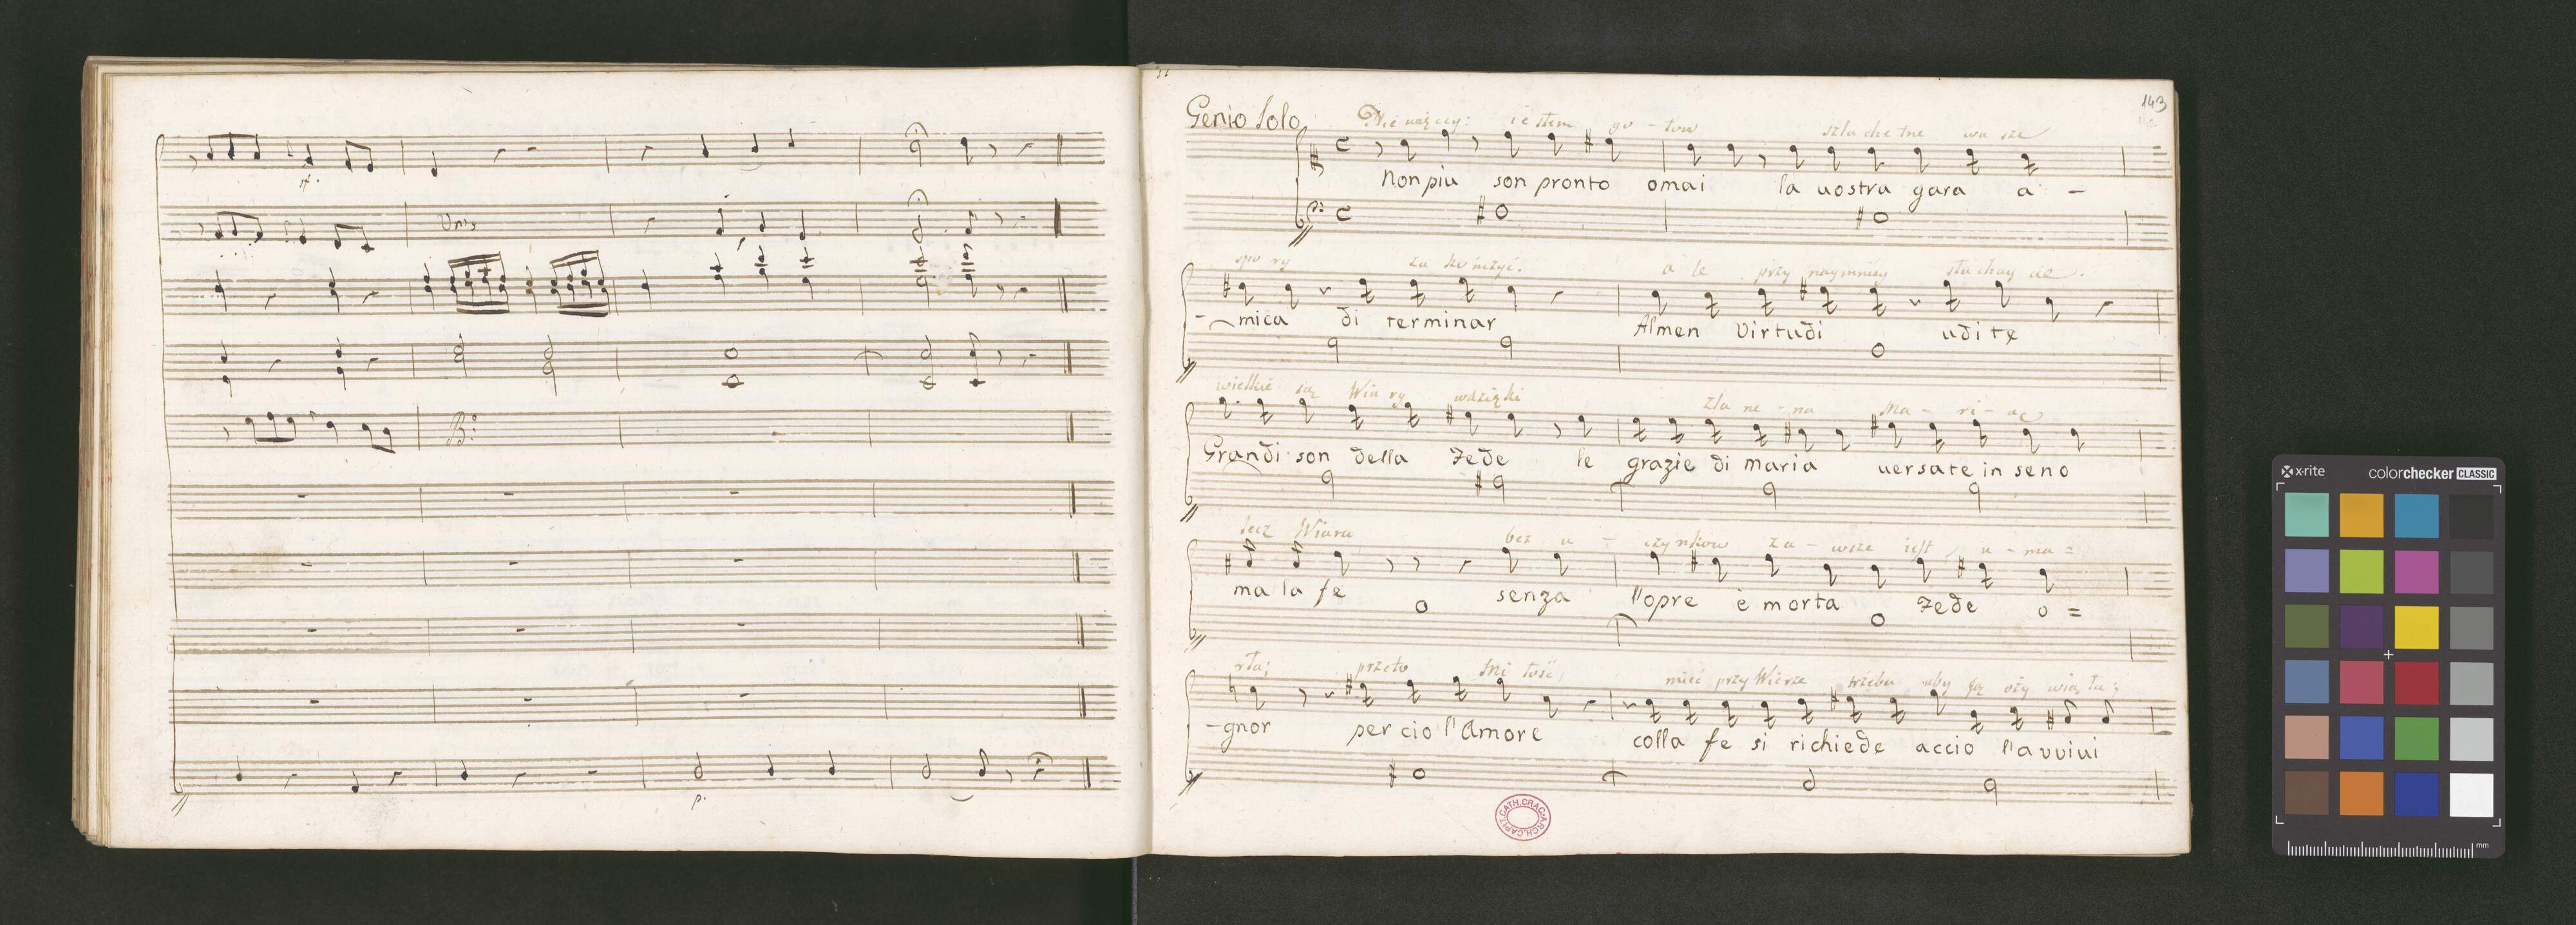 sf.
Unis
B:
p.
143
Genio Solo
Nie więcey: iestem go - tow szlachetne wa sze
Non piu son pronto omai la uostra gara a -
spo ry za kończyć. a le przy naymniey słu chay cie.
- mica di terminar Almen Virtudi udi te
wielkie są Wia ry wdzięki Ma - ri - ą
Grandi son della Fede le grazie di maria uersate in seno
lecz Wiara bez u - czynkow za - wsze iest u - ma =
ma la fe senza l'opre è morta Fede o =
rła; przeto Mi łość mieć przy Wierze trzeba aby ją oży wia ła;
- gnor per cio l'Amore colla fe si richiede accio l'avviui
ARCH.CAPIT.CATH.CRAC.
x-rite
colorchecker CLASSIC
mm